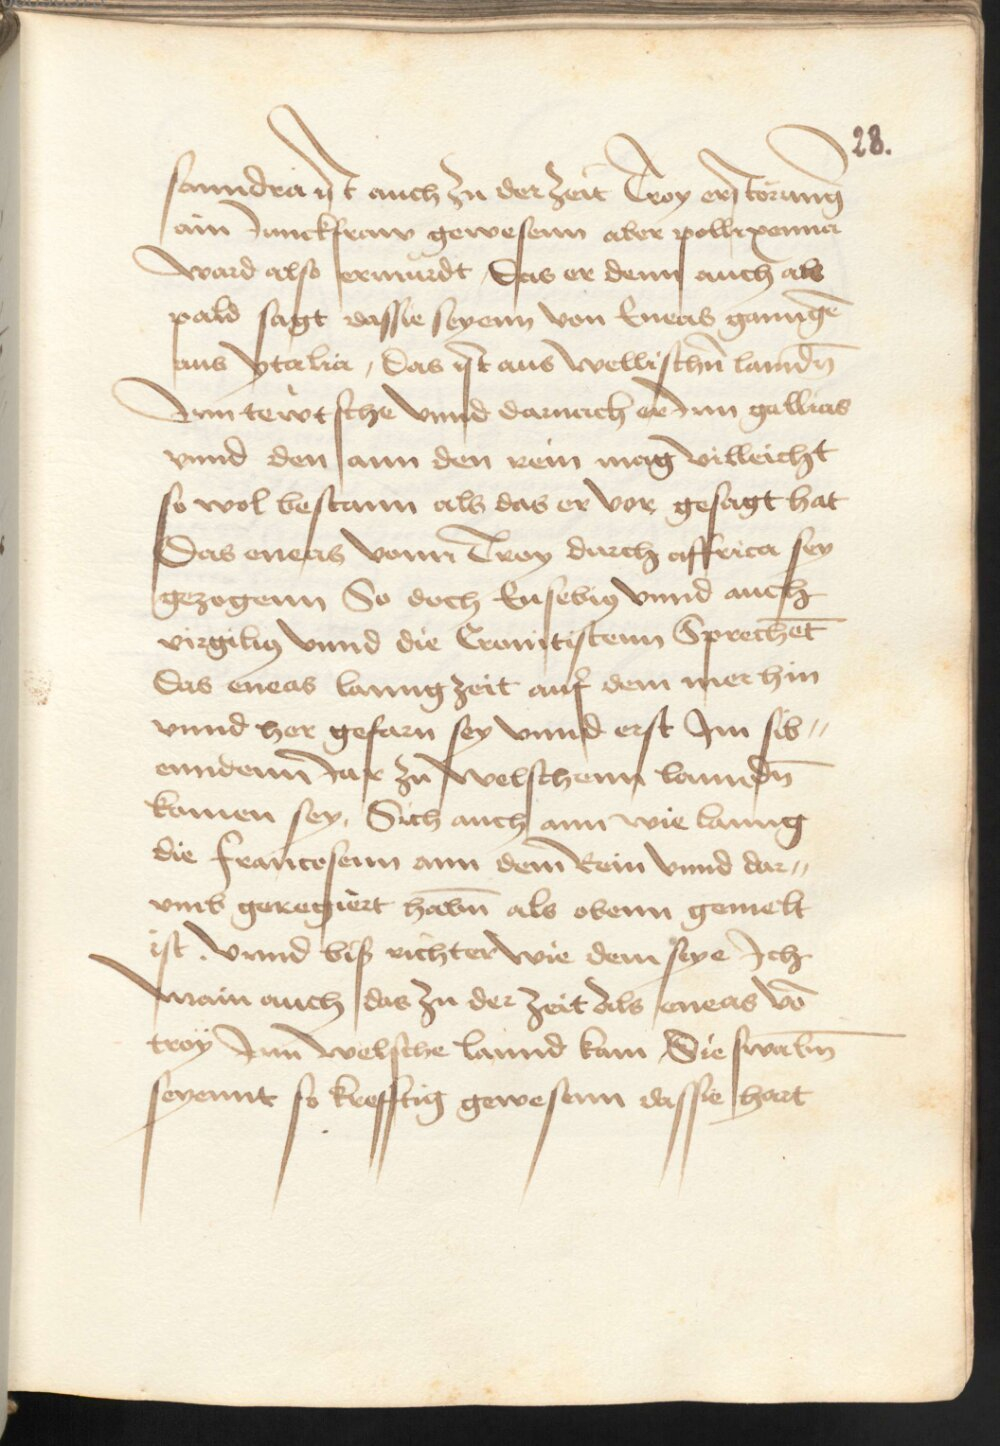 28.
sanndra ist auch zu der zeit Troy erstorung
ain Junckfraw gewesenn aber pollixenna
ward also ermürdt Das er denn auch als
pald sagt dassie seyenn von Eneas ganngē
aus ytalia, Das ist aus wellischn̄ lanndn̄
Inn tewtsche vnnd darnach er Inn gallias
vnnd den ann den rein mag villeicht
so wol bestann als das er vor gesagt hat
Das eneas vonn Troy durch affrica sey
gezogenn So doch Eusebiꝯ vnnd auch
virgiliꝯ vnnd die Cronitistenn Sprechet
das eneas lanng zeit auf dem mer hin
vnnd her gefarn sey vnnd erst Im sib〃
enndenn Jar zu welschenn lanndn̄
komen sey, Sich auch ann wie lanng
die francosenn ann dem Rein vnnd dar〃
vmb geregiert habn̄ als obenn gemelt
ist. vnnd biß richter wie dem seye Ich
main auch das zu der zeit als eneas vō
troÿ Inn welsche lannd kam Die swabn̄
seyennt so krefftig gewesenn dassie hart